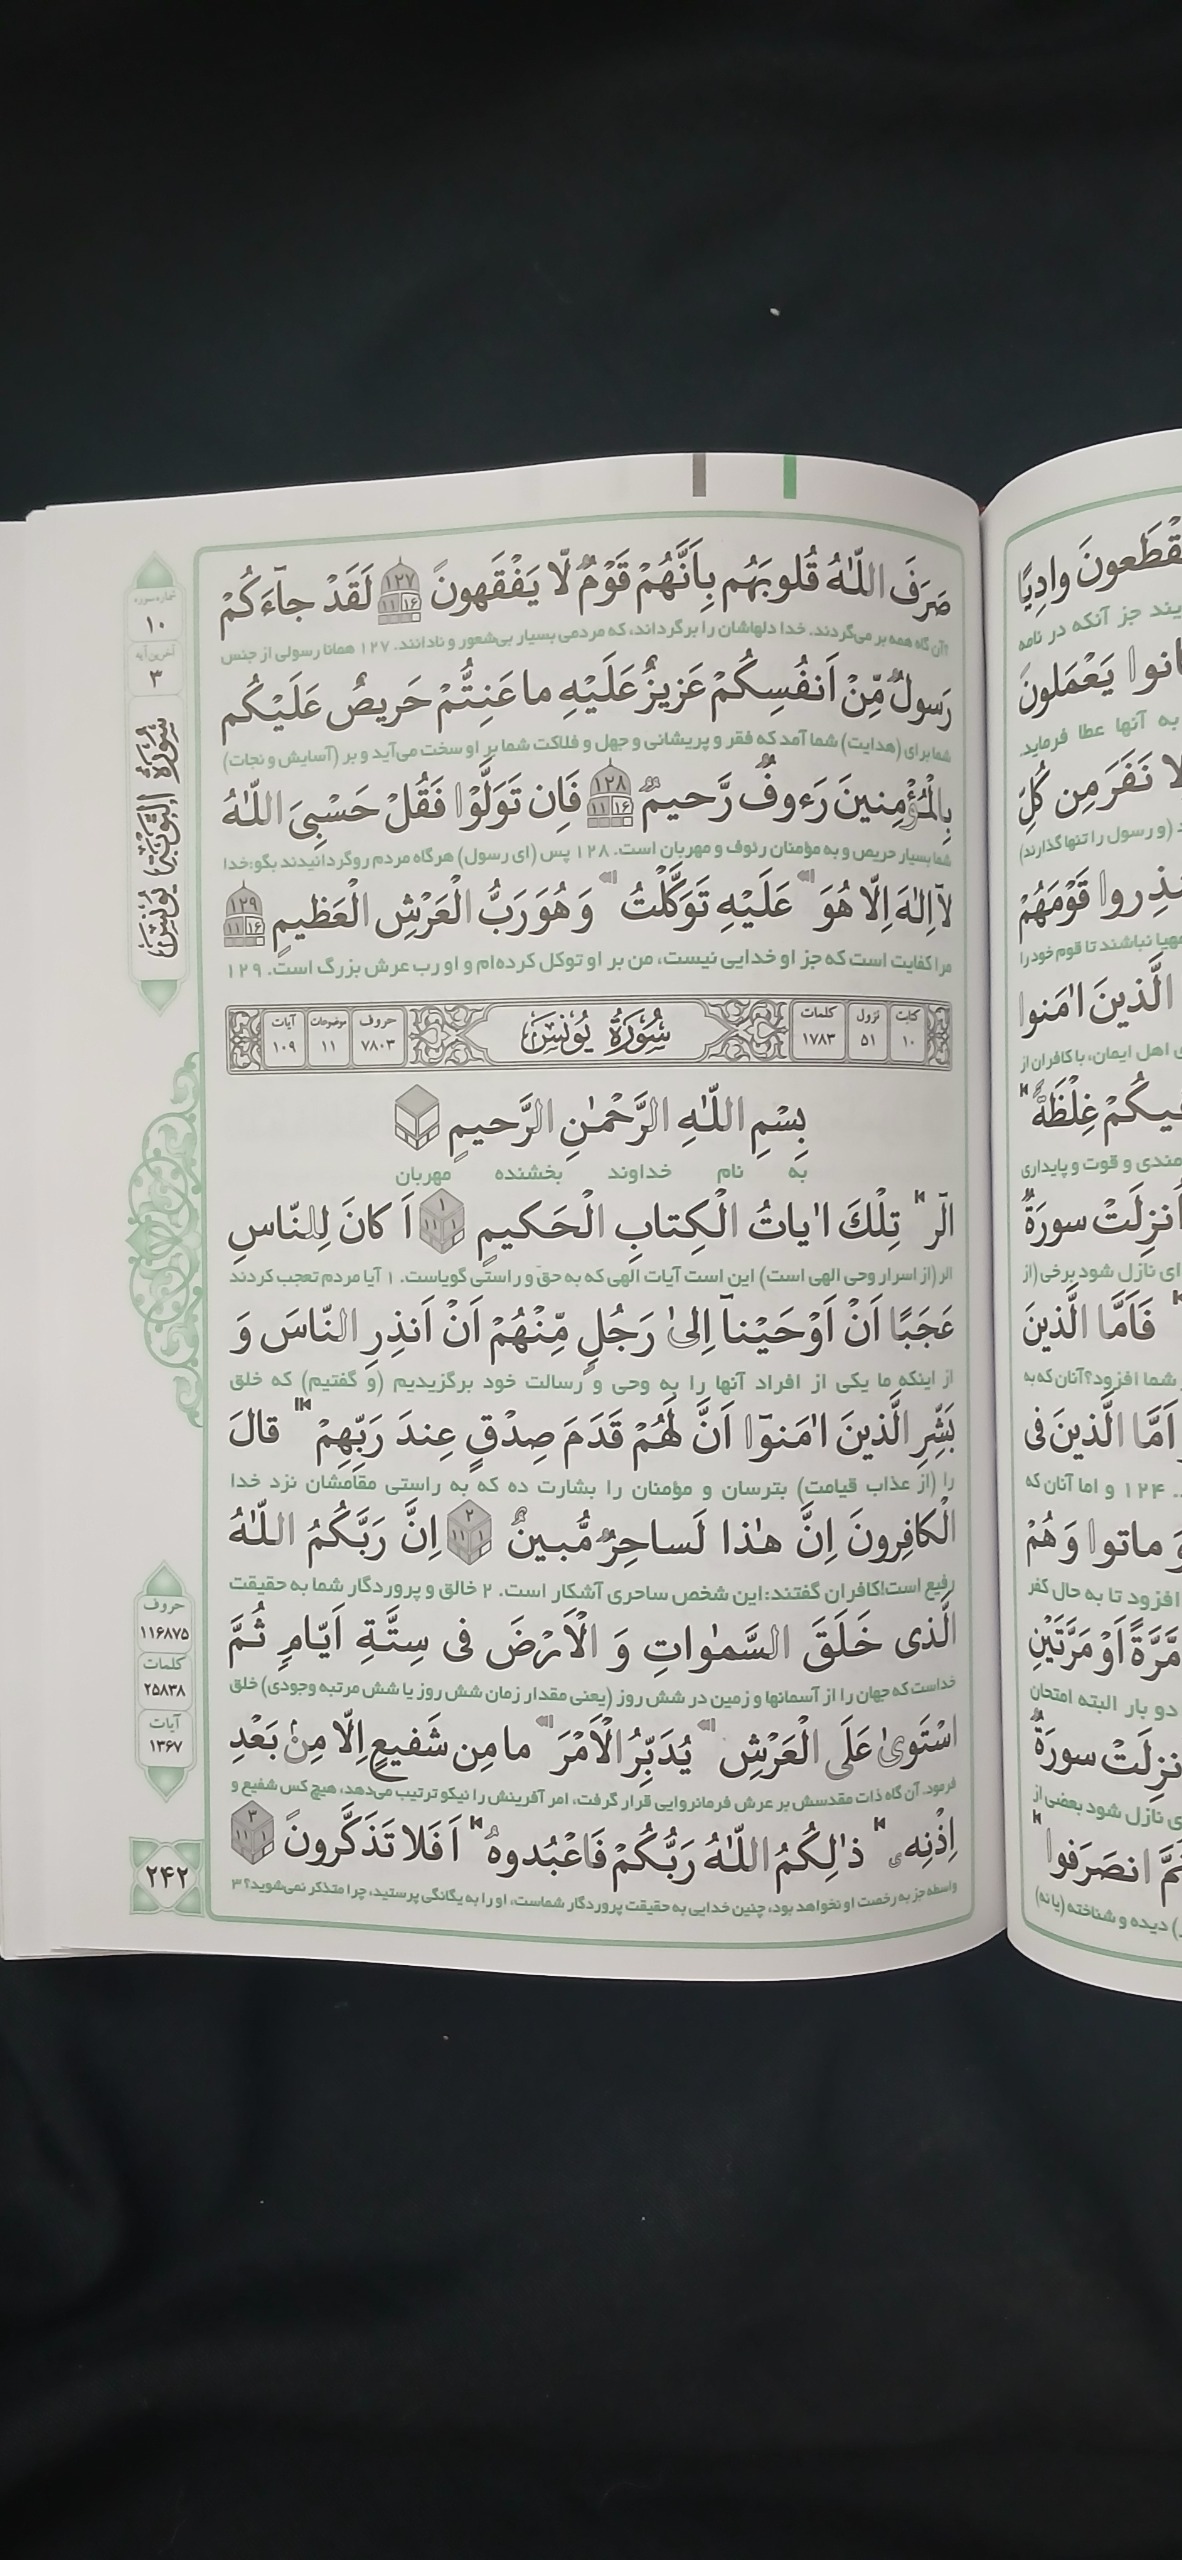 صَرَفَ اللّٰهُ قُلوبَهُم بِاَنَّهُمْ قَوْمٌ لّا يَفْقَهونَ ١٢٧ لَقَدْ جآءَكُمْ
آن گاه همه بر می‌گردند. خدا دلهاشان را برگرداند، که مردمی بسیار بی‌شعور و نادانند. ۱۲۷ همانا رسولی از جنس
رَسولٌ مِّنْ اَنفُسِكُمْ عَزيزٌ عَلَيْهِ ما عَنِتُّمْ حَريصٌ عَلَيْكُم
شما برای (هدایت) شما آمد که فقر و پریشانی و جهل و فلاکت شما بر او سخت می‌آید و بر (آسایش و نجات)
بِالْمُؤْمِنينَ رَءوفٌ رَّحيمٌ ١٢٨ فَاِن تَوَلَّوْا فَقُلْ حَسْبِىَ اللّٰهُ
شما بسیار حریص و به مؤمنان رئوف و مهربان است. ۱۲۸ پس (ای رسول) هرگاه مردم روگردانیدند بگو: خدا
لآ اِلٰهَ اِلّا هُوَ عَلَيْهِ تَوَكَّلْتُ وَ هُوَ رَبُّ الْعَرْشِ الْعَظيمِ ١٢٩
مرا کفایت است که جز او خدایی نیست، من بر او توکل کرده‌ام و او رب عرش بزرگ است. ۱۲۹
کتابت ۱۰ نزول ۵۱ کلمات ۱۷۸۳ سُورَةُ يُونُسَ حروف ۷۸۰۳ موضوعات ۱۱ آیات ۱۰۹
بِسْمِ اللّٰهِ الرَّحْمٰنِ الرَّحيمِ
به نام خداوند بخشنده مهربان
الٓر تِلْكَ اٰياتُ الْكِتابِ الْحَكيمِ ١ اَ كانَ لِلنّاسِ
الر (از اسرار وحی الهی است) این است آیات الهی که به حق و راستی گویاست. ۱ آیا مردم تعجب کردند
عَجَبًا اَنْ اَوْحَيْنآ اِلىٰ رَجُلٍ مِّنْهُمْ اَنْ اَنذِرِ النّاسَ وَ
از اینکه ما یکی از افراد آنها را به وحی و رسالت خود برگزیدیم (و گفتیم) که خلق
بَشِّرِ الَّذينَ اٰمَنوٓا اَنَّ لَهُمْ قَدَمَ صِدْقٍ عِندَ رَبِّهِمْ قالَ
را (از عذاب قیامت) بترسان و مؤمنان را بشارت ده که به راستی مقامشان نزد خدا
الْكافِرونَ اِنَّ هٰذا لَساحِرٌ مُّبينٌ ٢ اِنَّ رَبَّكُمُ اللّٰهُ
رفیع است! کافران گفتند: این شخص ساحری آشکار است. ۲ خالق و پروردگار شما به حقیقت
الَّذى خَلَقَ السَّمٰواتِ وَ الْاَرْضَ فى سِتَّةِ اَيّامٍ ثُمَّ
خداست که جهان را از آسمانها و زمین در شش روز (یعنی مقدار زمان شش روز یا شش مرتبه وجودی) خلق
اسْتَوىٰ عَلَى الْعَرْشِ يُدَبِّرُ الْاَمْرَ ما مِن شَفيعٍ اِلّا مِنْ بَعْدِ
فرمود. آن گاه ذات مقدسش بر عرش فرمانروایی قرار گرفت، امر آفرینش را نیکو ترتیب می‌دهد، هیچ کس شفیع و
اِذْنِهٖ ذٰلِكُمُ اللّٰهُ رَبُّكُمْ فَاعْبُدوهُ اَفَلا تَذَكَّرونَ ٣
واسطه جز به رخصت او نخواهد بود، چنین خدایی به حقیقت پروردگار شماست، او را به یگانگی پرستید، چرا متذکر نمی‌شوید؟ ۳
شماره سوره
۱۰
آخرین آیه
۳
سُورَةُ التَّوبَةِ يُونُسَ
حروف
۱۱۶۸۷۵
کلمات
۲۵۸۳۸
آیات
۱۳۶۷
۲۴۲
يَقْطَعونَ وادِيًا
جز آنکه در نامه
يَعْمَلونَ
به آنها عطا فرماید.
نَفَرَ مِن كُلِّ
(و رسول را تنها گذارند)
قَوْمَهُمْ
مهیا نباشند تا قوم خود را
الَّذينَ اٰمَنوا
اهل ایمان، با کافران از
فيكُمْ غِلْظَةً
و قوت و پایداری
اُنزِلَتْ سورَةٌ
نازل شود برخی (از
فَاَمَّا الَّذينَ
شما افزود؟ آنان که به
اَمَّا الَّذينَ فى
۱۲۴ و اما آنان که
وَ ماتوا وَ هُمْ
افزود تا به حال کفر
مَّرَّةً اَوْ مَرَّتَيْنِ
دو بار البته امتحان
سورَةٌ
نازل شود بعضی از
انصَرَفوا
دیده و شناخته (یا نه)